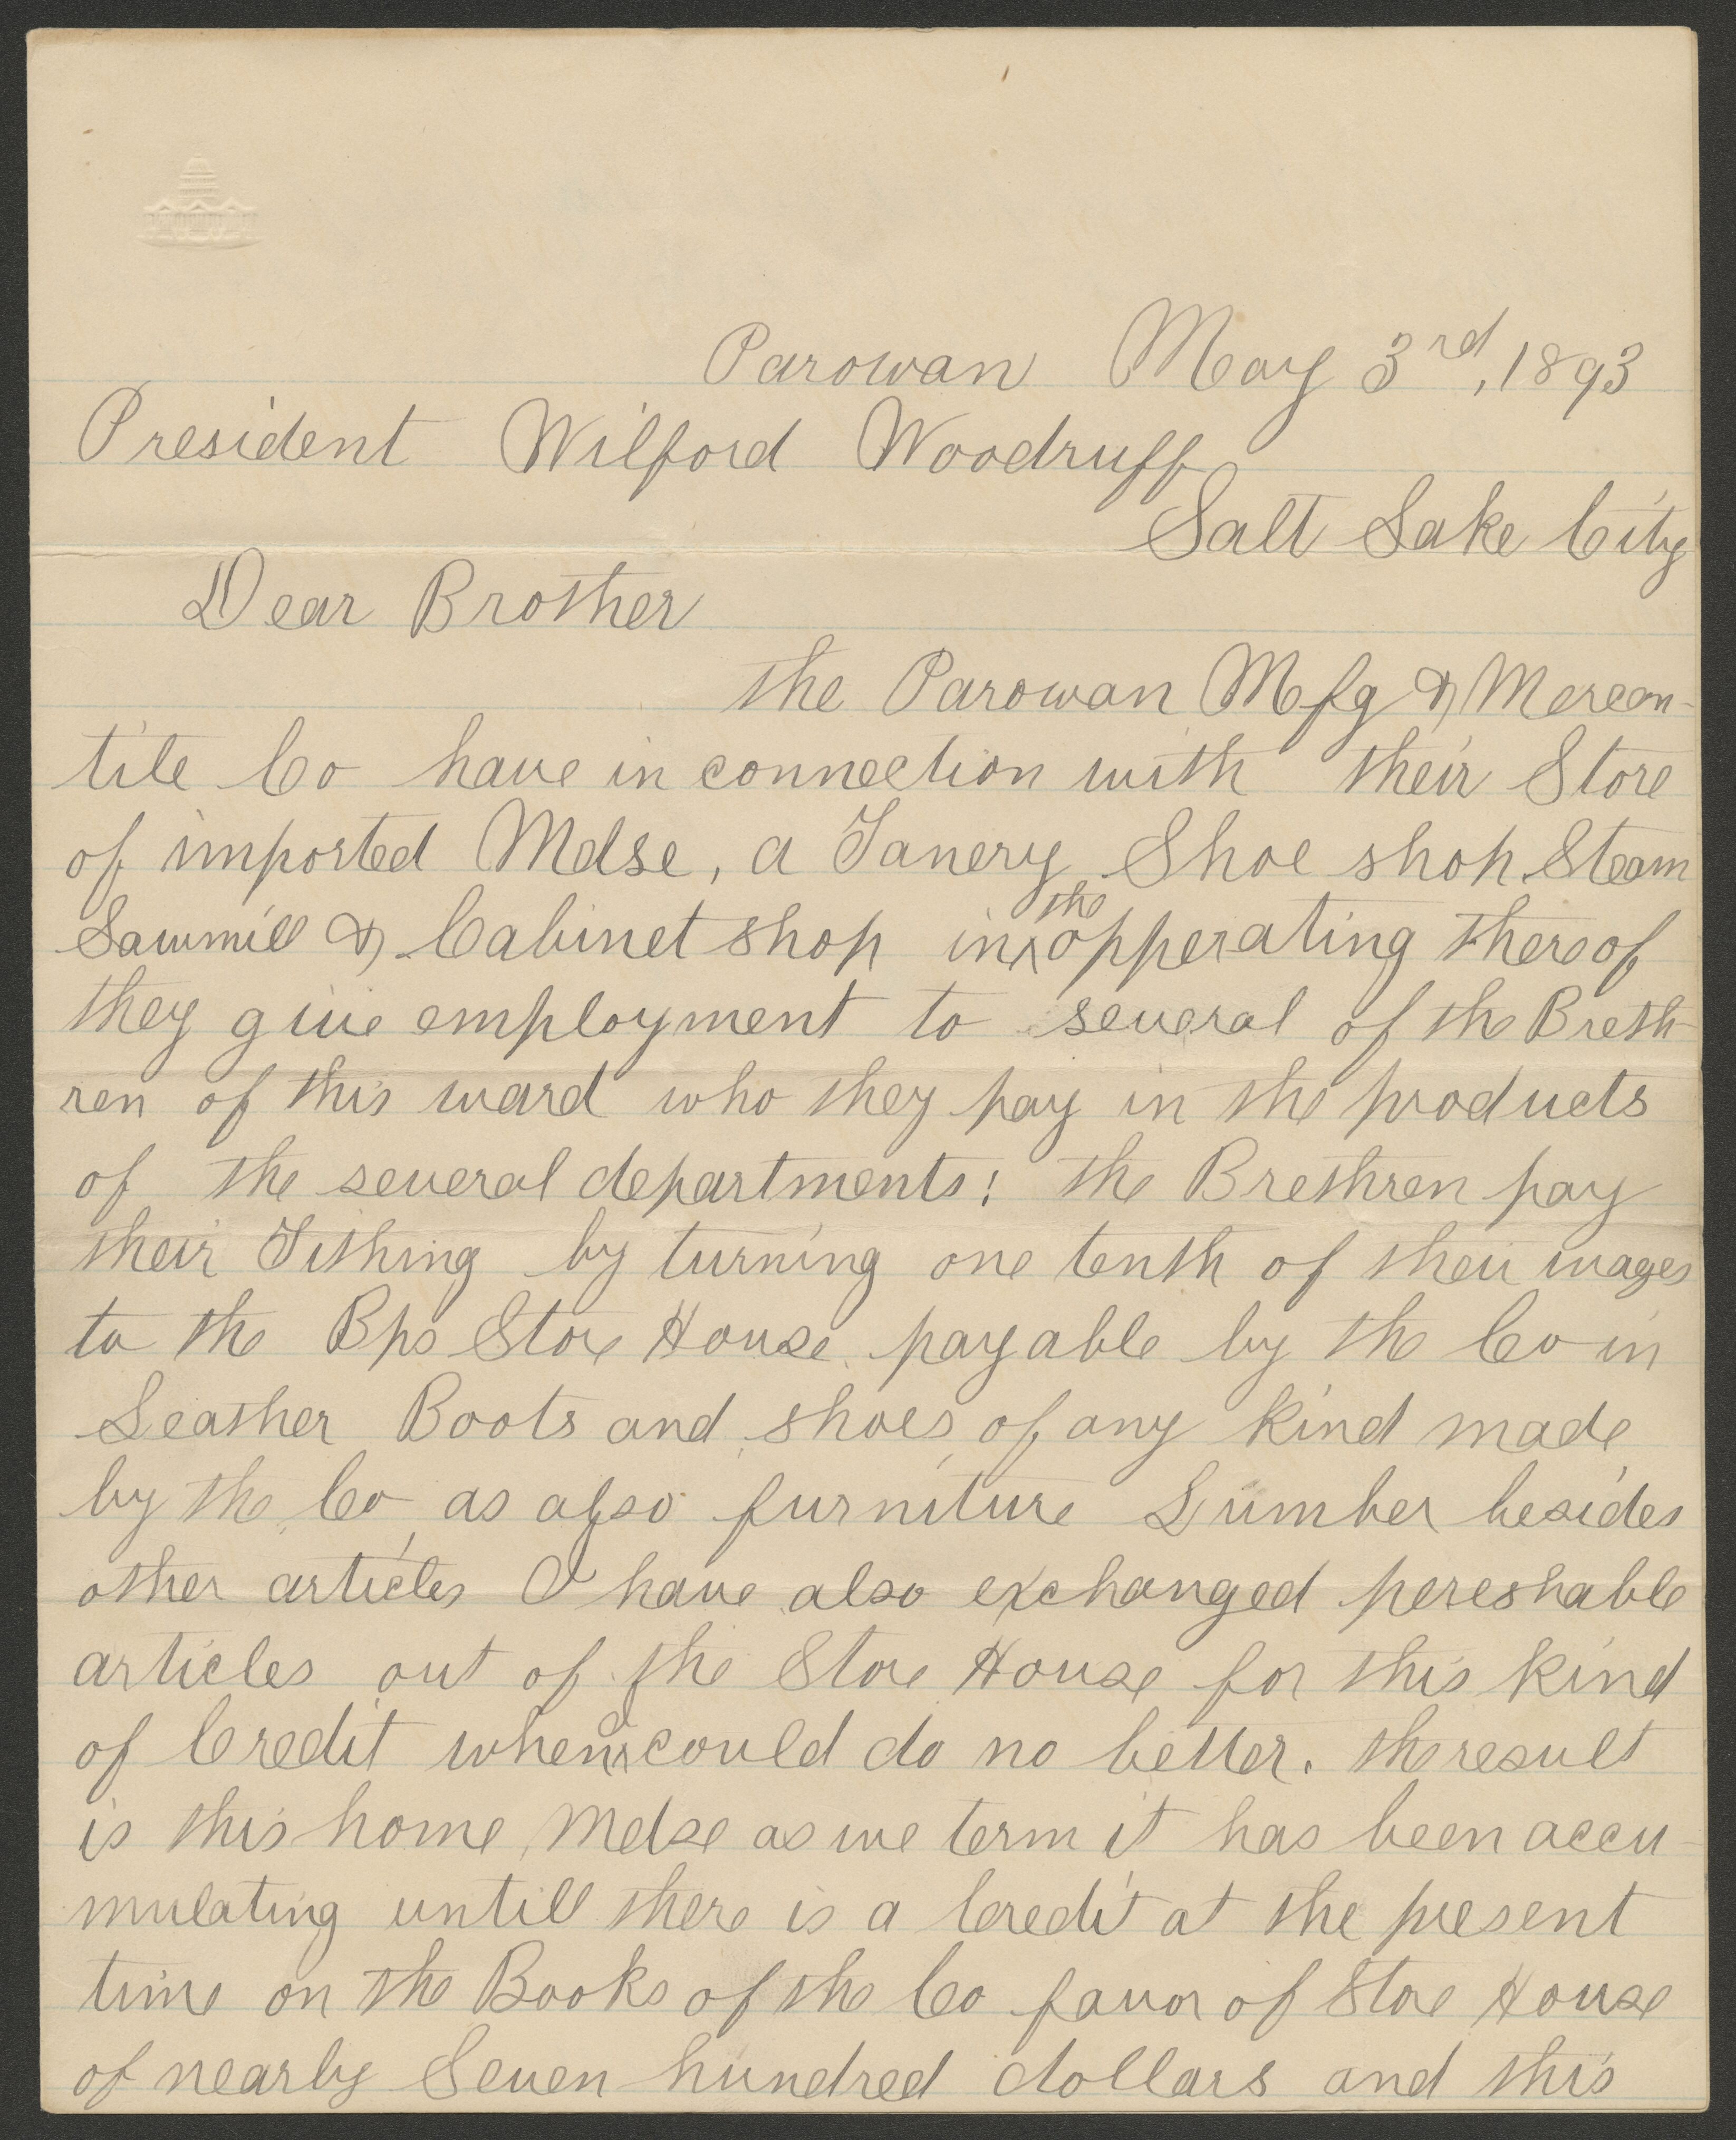 Parowan May 3rd, 1893
President Wilford Woodruff
Salt Lake City
Dear Brother
the Parowan Mfg & Mercan-
tile Co have in connection with their Store
of imported Mdse, a Tanery Shoe shop Steam
Sawmill & Cabinet shop in the opperating thereof
they give employment to several of the Breth-
ren of this ward who they pay in the products
of the several departments; the Brethren pay
their Tithing by turning one tenth of their wages
to the Bps Store House payable by the Co in
Leather Boots and shoes of any kind made
by the Co as also furniture Lumber besides
other articles I have also exchanged pereshable
articles out of the Store House for this kind
of Credit when I could do no better. the result
is this home Mdse as we term it has been accu-
mulating untill there is a Credit at the present
time on the Books of the Co favor of Store House
of nearly Seven hundred dollars and this